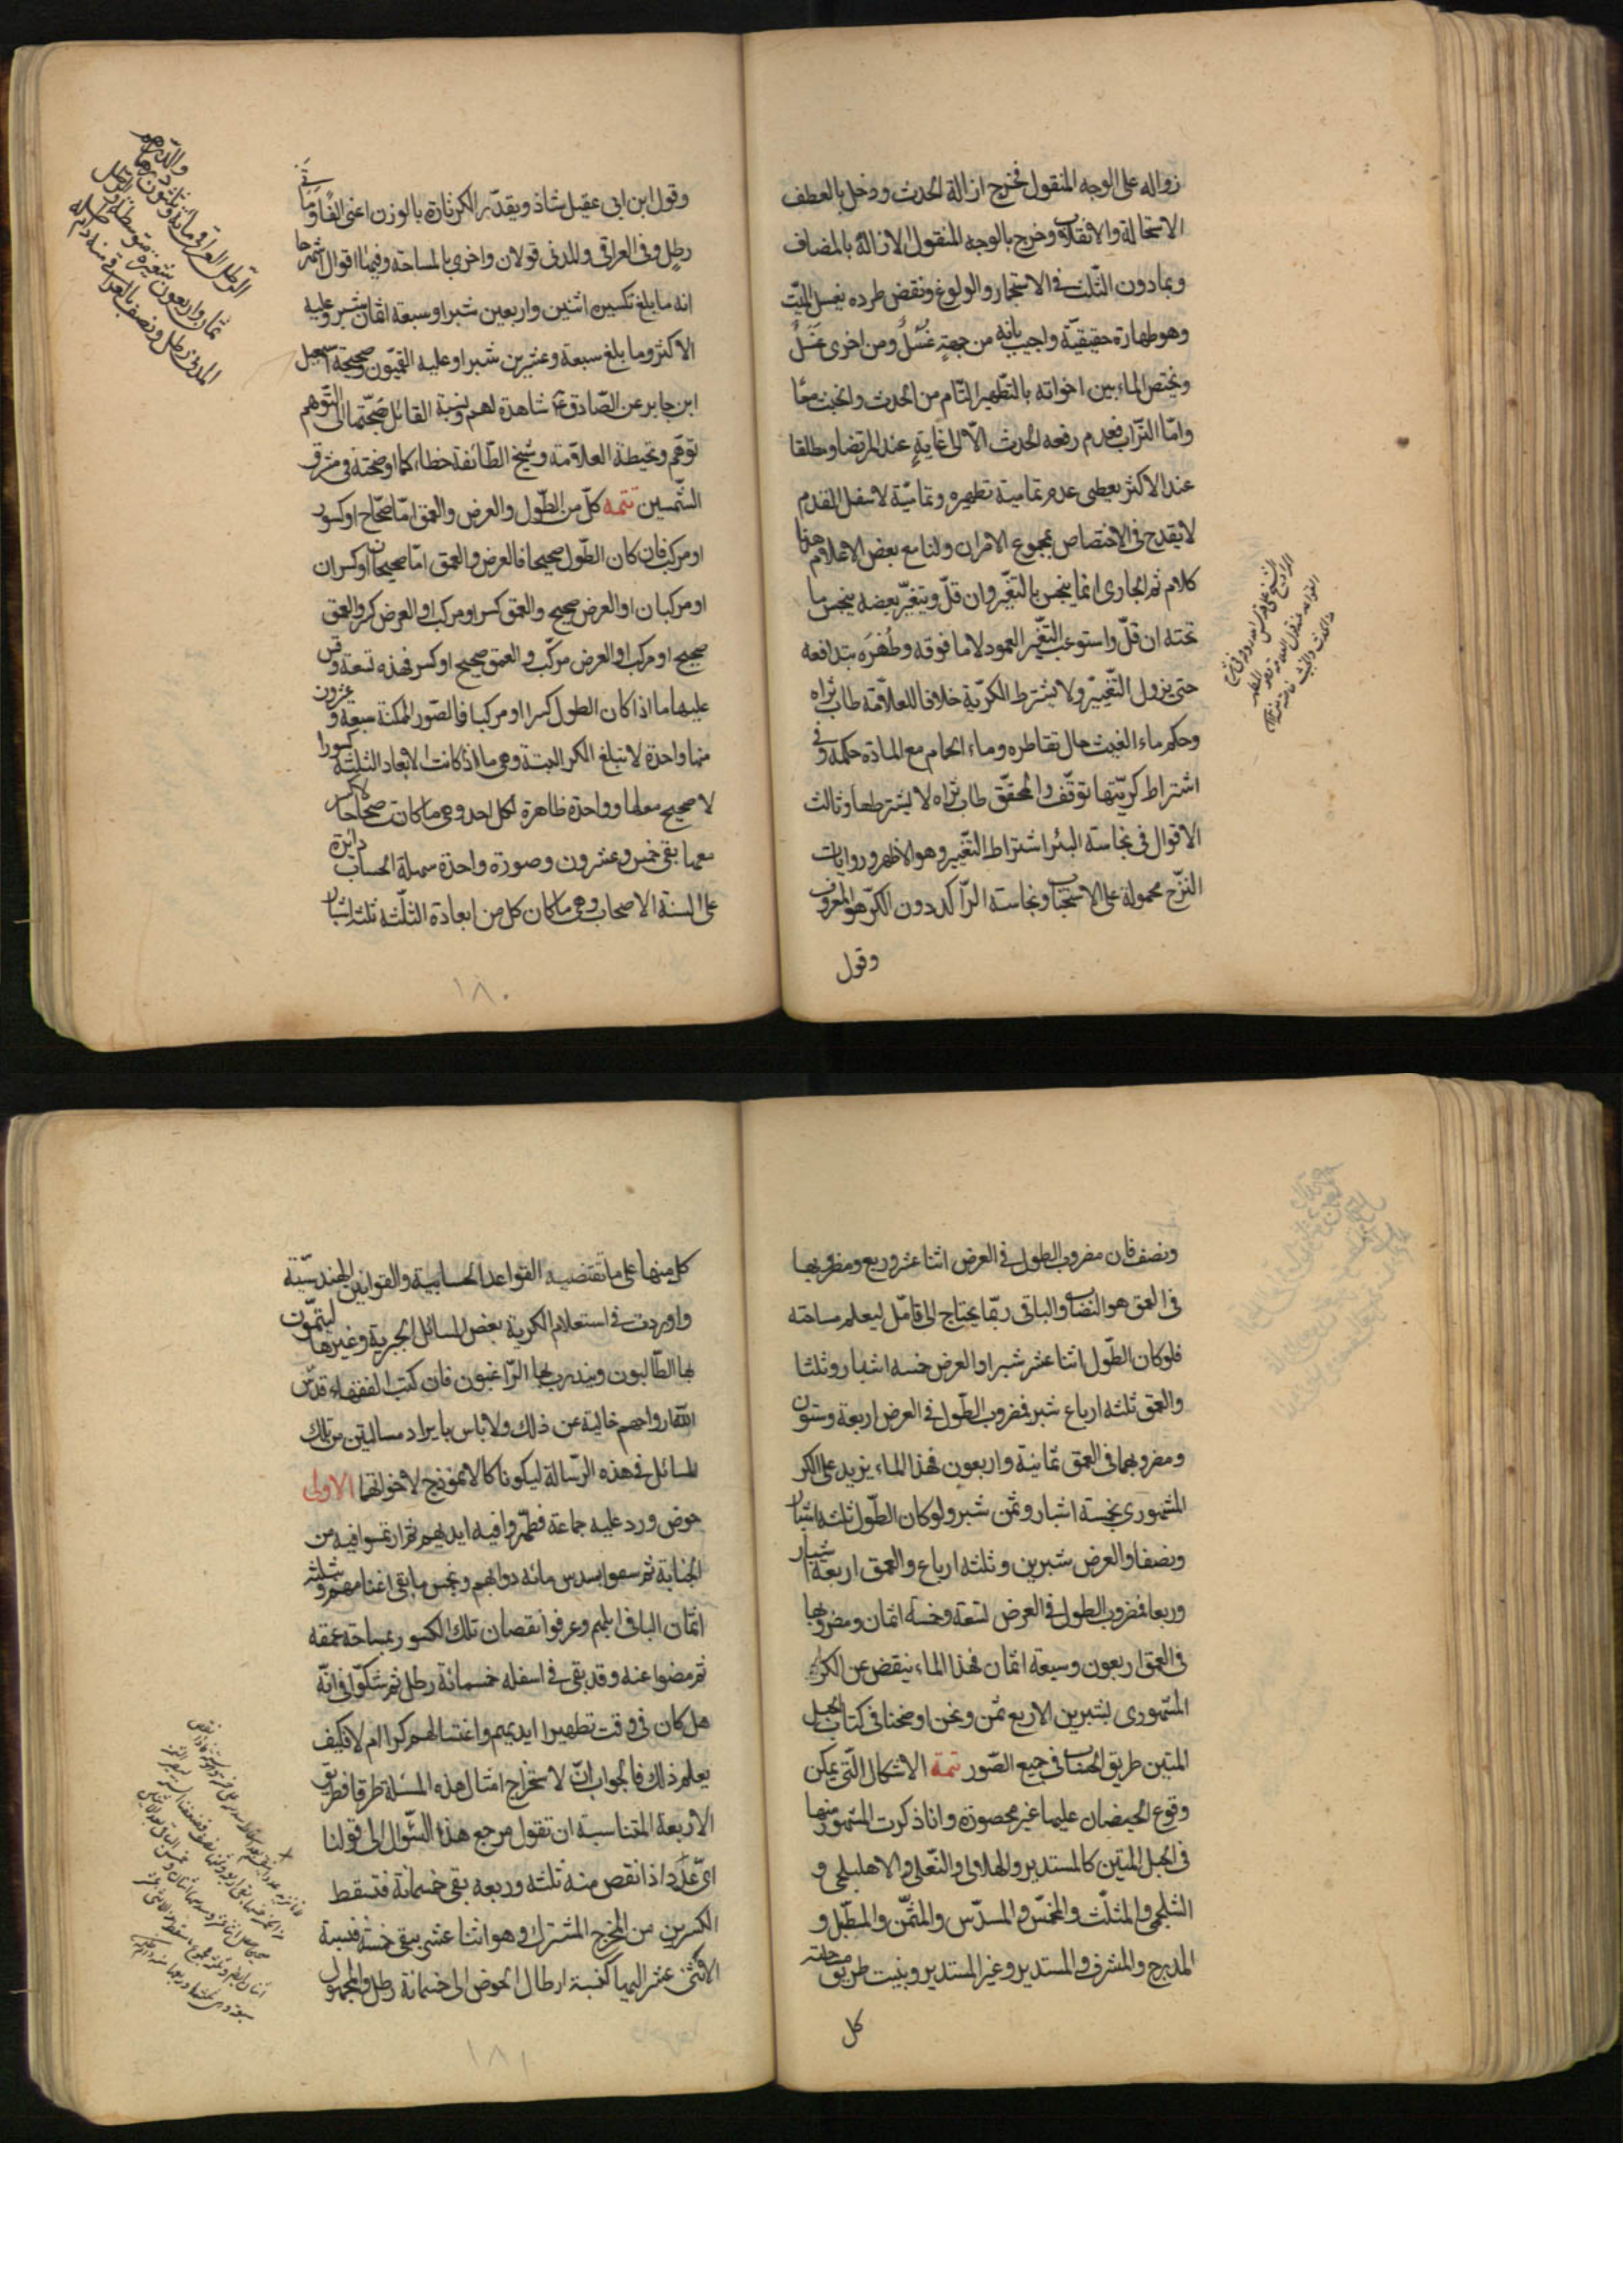 زواله على الوجه المنقول فخرج ازالة الحدث ودخل بالعطف
الاستحالة والانقلاب وخرج بالوجه المنقول الازالة بالمضاف
وبمادون الثلث في الاستجمار والولوغ ونقض طرده بغسل الميّت
وهو طهارة حقيقيّة واجيب بانه من جهةٍ غُسْلٌ ومن اخرى غَسْلٌ
ويختص الماء بين اخواته بالتطهير التام من الحدث والخبث معًا
وامّا التراب فعدم رفعه الحدث الّا الى غايةٍ عند المرتضى او مطلقا
عند الاكثر يعطى عدم تمامية تطهيره وتماميّة لاسفل القدم
لا يقدح في الاختصاص بمجموع الامرين ولنا مع بعض الاعلام هنا
كلام ثم الجارى انما ينجس بالتغيّر وان قلّ وبتغيّر بعضه ينجس ما
تحته ان قلّ واستوعب التغيّر العمود لا ما فوقه وطُهرَه بتدافعه
حتى يزول التغيير ولا يشترط الكرّية خلافا للعلّامة طاب ثراه
وحكم ماء الغيث حال تقاطره وماء الحمام مع المادّة حكمه وفي
اشتراط كرّيتها توقّف والمحقّق طاب ثراه لا يشترطها وثالث
الاقوال في نجاسة البئر اشتراط التغيير وهو الاظهر وروايات
النزح محمولة على الاستحباب ونجاسة الراكد دون الكرّ هو المعروف
وقول
وقول ابن ابى عقيل شاذ ويقدّر الكر تارة بالوزن اعنى الفًا ومأتى
رطل وفي العراقى والمدنى قولان واخرى بالمساحة وفيها اقوال اشهرها
انه ما بلغ تكسيره اثنين واربعين شبرا وسبعة اثمان شبر وعليه
الاكثر وما بلغ سبعة وعشرين شبرا وعليه القميّون وصحيحة اسمعيل
ابن جابر عن الصّادق ع شاهدة لهم ونسبة القائل بصحّتها الى التوهم
توهّم وتخطئة العلّامة وشيخ الطّائفة خطا كما اوضحته في مشرق
الشّمسين تتمه كلّ من الطّول والعرض والعمق امّا صحاح او كسور
او مركب فان كان الطّول صحيحا فالعرض والعمق امّا صحيحان او كسران
او مركبان او العرض صحيح والعمق كسر او مركب او العرض كسر والعمق
صحيح او مركب او العرض مركّب والعمق صحيح او كسر فهذه تسعة وقس
عليها ما اذا كان الطول كسرا او مركبا فالصّور الممكنة سبعة وعشرون
منها واحدة لا تبلغ الكر البتة وهى ما اذا كانت الابعاد الثلثة كسورا
لا صحيح معها وواحدة ظاهرة لكل احد وهى ما كانت صحاحا لا كسر
معها بقى خمس وعشرون وصورة واحدة سهلة الحساب دائرة
على السنة الاصحاب وهى ما كان كل من ابعاده الثلثة ثلثة اشبار
والدرهم
الرّطل العراقى مائة وثلثون درهما
ثمان واربعون شعيرة متوسطة والرطل
المدنى رطل ونصف بالعراقى
١٨٠
ونصف فان مضروب الطول في العرض اثنا عشر وربع ومضروبها
في العمق هو النصاب والباقى ربّما يحتاج الى تأمّل ليعلم مساحته
فلو كان الطّول اثنا عشر شبرا والعرض خمسه اشبار وثلثا
والعمق ثلثه ارباع شبر فمضروب الطّول في العرض اربعة وستون
ومضروبهما في العمق ثمانية واربعون فهذا الماء يزيد على الكر
المشهورى بخمسة اشبار وثمن شبر ولو كان الطّول ثلثه اشبار
ونصفا والعرض شبرين وثلثه ارباع والعمق اربعة اشبار
وربعا فمضروب الطول في العرض تسعة وخمسة اثمان ومضروبها
في العمق اربعون وسبعة اثمان فهذا الماء ينقض عن الكر
المشهورى بشبرين الا ربع ثمن ونحن اوضحنا في كتاب الحبل
المتين طريق الحساب في جميع الصّور تتمة الاشكال الّتى يمكن
وقوع الحيضان عليها غير محصورة وانا ذكرت المشهور منها
في الحبل المتين كالمستدير والهلالى والنّعلى والاهليلجى و
الشلجمى والمثلّث والمخمّس والمسدّس والمثمّن والمطبّل و
المدرج والمشرف المستدير وغير المستدير وبينت طريق مساحته
كل
كل منها على ما تقتضيه القواعد الحسابية والقوانين الهندسيّة
واوردت في استعلام الكرية بعض المسائل الجبرية وغيرها ليتمّون
بها الطّالبون ويتدرب بها الرّاغبون فان كتب الفقهاء قدّس
الله ارواحهم خالية عن ذلك ولا باس بايراد مسالتين من تلك
المسائل في هذه الرّسالة ليكونا كالانموذج لاخواتها الاولى
حوض ورد عليه جماعة فطهّروا فيه ايديهم ثم ارتمسوا فيه من
الجنابة ثم سقوا بسدس مائه دوابهم وبخمس ما بقى اغنامهم وبثلثة
اثمان الباقى ابلهم وعرفوا نقصان تلك الكسور بمساحة عمقه
ثم مضوا عنه وقد بقى في اسفله خمسمائة رطل ثم شكّوا في انّه
هل كان في وقت تطهيرا ايديهم واغتسالهم كرا ام لا فكيف
يعلم ذلك فالجواب انّ لاستخراج امثال هذه المسئلة طرقا فطريق
الاربعة المتناسبة ان تقول مرجع هذا السّوال الى قولنا
اىّ عدد اذا نقص منه ثلثه وربعه بقى خمسمائة فتسقط
الكسرين من المخرج المشترك وهو اثنا عشر يبقى خمسة فنسبة
الاثنى عشر اليها كنسبة ارطال الحوض الى خمسمائة رطل والمجهول
١٨١